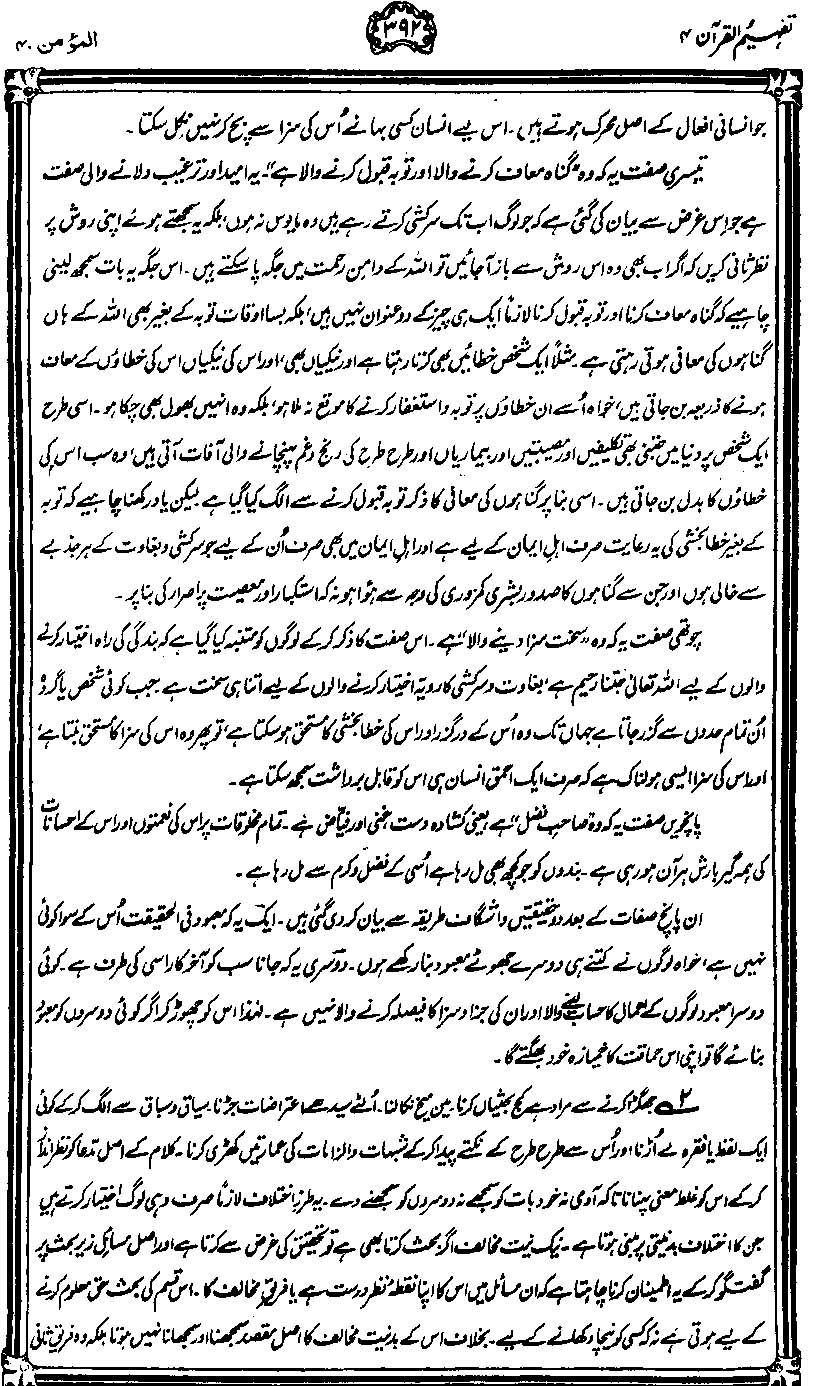 تفہیم القرآن ۴
۳۹۲
المؤمن ۴۰
جو انسانی افعال کے اصل محرک ہوتے ہیں۔ اس لیے انسان کسی بہانے اُس کی سزا سے بچ کر نہیں نکل سکتا۔
تیسری صفت یہ کہ وہ ”گناہ معاف کرنے والا اور توبہ قبول کرنے والا ہے“۔ یہ امید اور ترغیب دلانے والی صفت
ہے جو اِس غرض سے بیان کی گئی ہے کہ جو لوگ اب تک سرکشی کرتے رہے ہیں وہ مایوس نہ ہوں، بلکہ یہ سمجھتے ہوئے اپنی روش پر
نظرثانی کریں کہ اگر اب بھی وہ اس روش سے باز آ جائیں تو اللہ کے دامنِ رحمت میں جگہ پا سکتے ہیں۔ اس جگہ یہ بات سمجھ لینی
چاہیے کہ گناہ معاف کرنا اور توبہ قبول کرنا لازماً ایک ہی چیز کے دو عنوان نہیں ہیں، بلکہ بسا اوقات توبہ کے بغیر بھی اللہ کے ہاں
گناہوں کی معافی ہوتی رہتی ہے۔ مثلاً ایک شخص خطائیں بھی کرتا رہتا ہے اور نیکیاں بھی، اور اس کی نیکیاں اس کی خطاؤں کے معاف
ہونے کا ذریعہ بن جاتی ہیں، خواہ اُسے ان خطاؤں پر توبہ و استغفار کرنے کا موقع نہ ملا ہو، بلکہ وہ انہیں بھول بھی چکا ہو۔ اسی طرح
ایک شخص پر دنیا میں جتنی بھی تکلیفیں اور مصیبتیں اور بیماریاں اور طرح طرح کی رنج و غم پہنچانے والی آفات آتی ہیں، وہ سب اس کی
خطاؤں کا بدل بن جاتی ہیں۔ اسی بنا پر گناہوں کی معافی کا ذکر توبہ قبول کرنے سے الگ کیا گیا ہے۔ لیکن یاد رکھنا چاہیے کہ توبہ
کے بغیر خطا بخشی کی یہ رعایت صرف اہلِ ایمان کے لیے ہے اور اہلِ ایمان میں بھی صرف اُن کے لیے جو سرکشی و بغاوت کے ہر جذبے
سے خالی ہوں اور جن سے گناہوں کا صدور بشری کمزوری کی وجہ سے ہوا ہو نہ کہ استکبار اور معصیت پر اصرار کی بنا پر۔
چوتھی صفت یہ کہ وہ ”سخت سزا دینے والا“ ہے۔ اس صفت کا ذکر کر کے لوگوں کو متنبہ کیا گیا ہے کہ بندگی کی راہ اختیار کرنے
والوں کے لیے اللہ تعالیٰ جتنا رحیم ہے، بغاوت و سرکشی کا رویہ اختیار کرنے والوں کے لیے اتنا ہی سخت ہے۔ جب کوئی شخص یا گروہ
اُن تمام حدوں سے گزر جاتا ہے جہاں تک وہ اُس کے درگزر اور اس کی خطا بخشی کا مستحق ہو سکتا ہے، تو پھر وہ اس کی سزا کا مستحق بنتا ہے،
اور اس کی سزا ایسی ہولناک ہے کہ صرف ایک احمق انسان ہی اس کو قابلِ برداشت سمجھ سکتا ہے۔
پانچویں صفت یہ کہ وہ ”صاحبِ فضل“ ہے یعنی کشادہ دست، غنی اور فیاض ہے۔ تمام مخلوقات پر اس کی نعمتوں اور اس کے احسانات
کی ہمہ گیر بارش ہر آن ہو رہی ہے۔ بندوں کو جو کچھ بھی مل رہا ہے اُسی کے فضل و کرم سے مل رہا ہے۔
ان پانچ صفات کے بعد دو حقیقتیں واشگاف طریقہ سے بیان کر دی گئی ہیں۔ ایک یہ کہ معبود فی الحقیقت اُس کے سوا کوئی
نہیں ہے، خواہ لوگوں نے کتنے ہی دوسرے جھوٹے معبود بنا رکھے ہوں۔ دوسری یہ کہ جانا سب کو آخرکار اسی کی طرف ہے۔ کوئی
دوسرا معبود لوگوں کے اعمال کا حساب لینے والا اور ان کی جزا و سزا کا فیصلہ کرنے والا نہیں ہے۔ لہٰذا اس کو چھوڑ کر اگر کوئی دوسروں کو معبود
بنائے گا تو اپنی اس حماقت کا خمیازہ خود بھگتے گا۔
۲ جھگڑا کرنے سے مراد ہے کج بحثیاں کرنا۔ مین میخ نکالنا۔ اُلٹے سیدھے اعتراضات جڑنا۔ سیاق و سباق سے الگ کر کے کوئی
ایک لفظ یا فقرہ لے اُڑنا اور اُس سے طرح طرح کے نکتے پیدا کر کے شبہات و الزامات کی عمارتیں کھڑی کرنا۔ کلام کے اصل مدعا کو نظر انداز
کر کے اس کو غلط معنی پہنانا تاکہ آدمی نہ خود بات کو سمجھے نہ دوسروں کو سمجھنے دے۔ یہ طرزِ اختلاف لازماً صرف وہی لوگ اختیار کرتے ہیں
جن کا اختلاف بدنیتی پر مبنی ہوتا ہے۔ نیک نیت مخالف اگر بحث کرتا بھی ہے تو تحقیق کی غرض سے کرتا ہے اور اصل مسائل زیرِ بحث پر
گفتگو کر کے یہ اطمینان کرنا چاہتا ہے کہ ان مسائل میں اس کا اپنا نقطۂ نظر درست ہے یا فریقِ مخالف کا۔ اس قسم کی بحث حق معلوم کرنے
کے لیے ہوتی ہے نہ کہ کسی کو نیچا دکھانے کے لیے۔ بخلاف اس کے بدنیت مخالف کا اصل مقصد سمجھنا اور سمجھانا نہیں ہوتا بلکہ وہ فریقِ ثانی